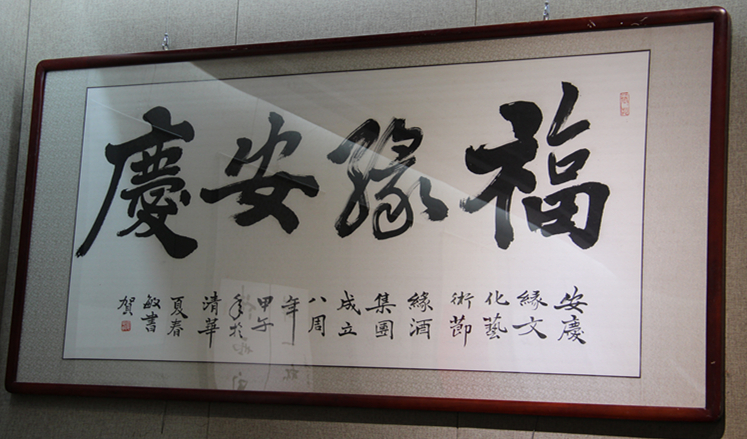 福緣安慶
安慶
緣文
化藝
術節
緣酒
集團
成立
八周
年
甲午
年於
清華
夏春
敏書
賀